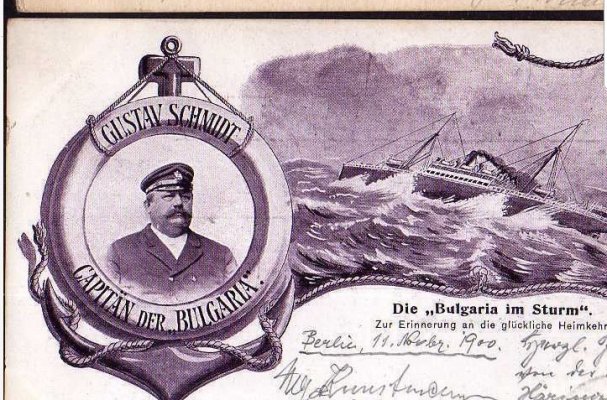 GUSTAV SCHMIDT
CAPITÄN DER „BULGARIA“.
Die „Bulgaria im Sturm“.
Zur Erinnerung an die glückliche Heimkehr
Berlin, 11. Novbr. 1900.
Herzl.
von der